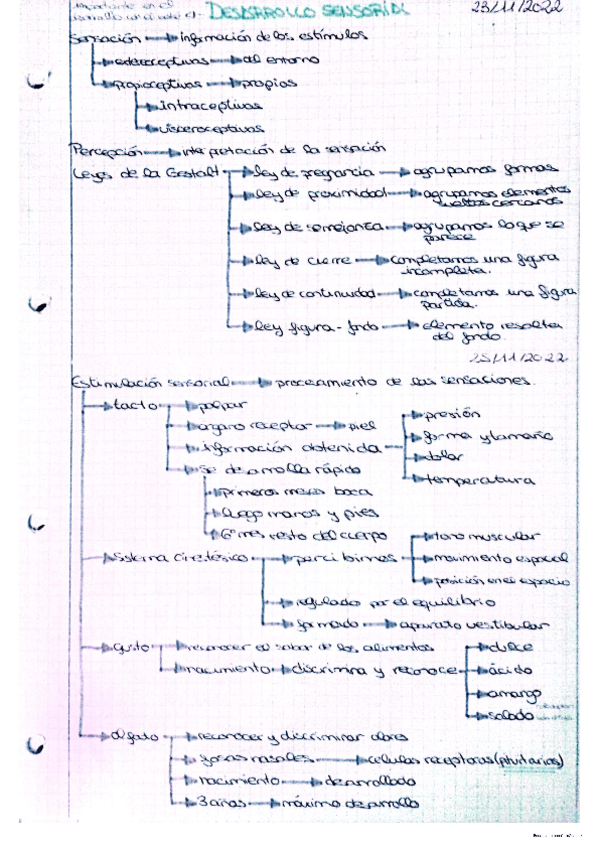 importante en el
desarrollo DESARROLLO SENSORIAL 23/11/2022
Sensación información de los estímulos
exteroceptivas al entorno
propioceptivas propios
intraceptivas
visceroceptivas
Percepción interpretación de la sensación
Leyes de la Gestalt ley de pregnancia agrupamos formas
ley de proximidad agrupamos elementos
cercanos
ley de semejanza agrupamos lo que se
parece
ley de cierre completamos una figura
incompleta.
ley de continuidad completamos una figura
partida.
ley figura-fondo elemento resalta
del fondo.
25/11/2022
Estimulación sensorial procesamiento de las sensaciones.
tacto palpar
órgano receptor piel presión
información obtenida forma y tamaño
dolor
se desarrolla rápido temperatura
primeros meses boca
luego manos y pies
6º mes resto del cuerpo
Sistema cinestésico percibimos tono muscular
movimiento espacial
posición en el espacio
regulado por el equilibrio
formado aparato vestibular
Gusto reconocer el sabor de los alimentos dulce
nacimiento discrimina y reconoce ácido
amargo
salado
olfato reconocer y discriminar olores
fosas nasales células receptoras (pituitarias)
nacimiento desarrollado
3 años máximo desarrollo